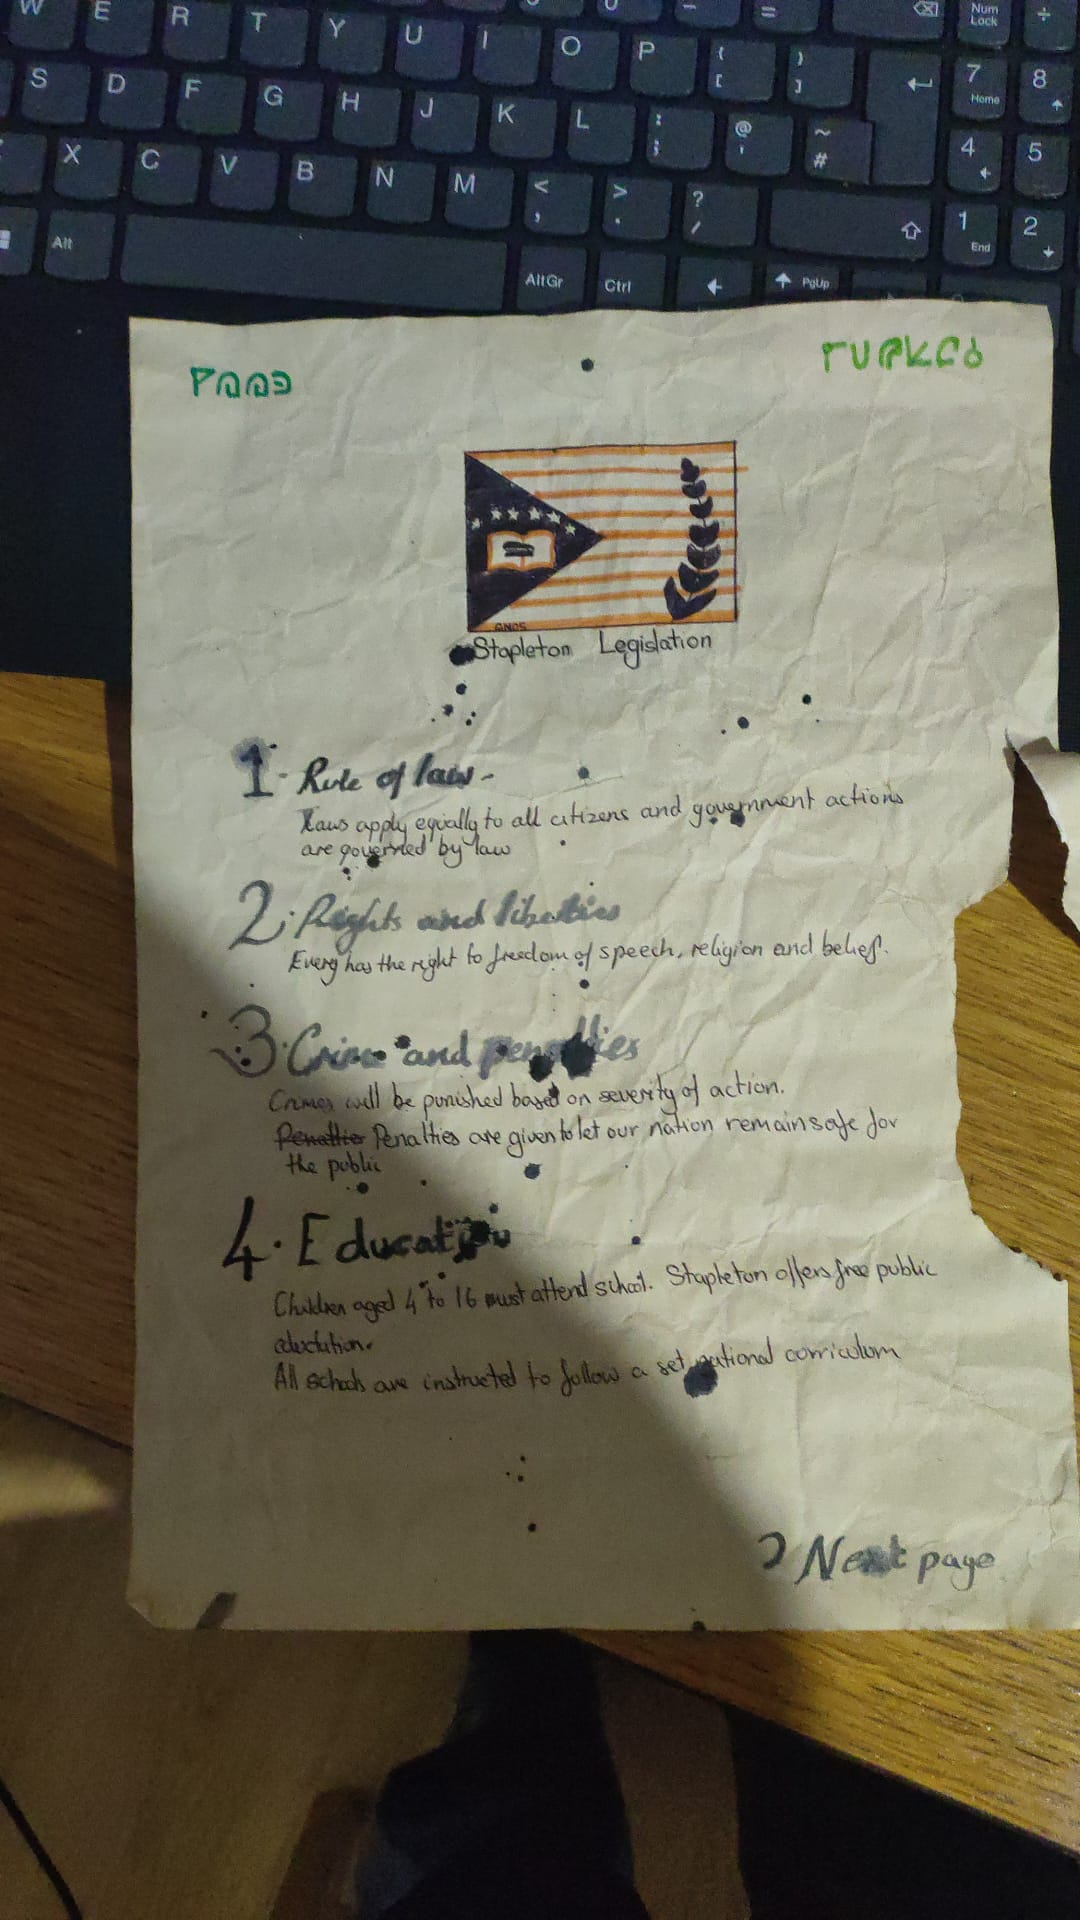 W E R T Y U I O P { [ } ] Num Lock ÷
S D F G H J K L : ; @ ' ~ # 7 Home 8
X C V B N M < , > . ? / 4 5
Alt AltGr Ctrl PgUp 1 End 2
GNDS
Stapleton Legislation
1. Rule of law -
Laws apply equally to all citizens and government actions
are governed by law
2. Rights and liberties
Every has the right to freedom of speech, religion and belief.
3. Crime and penalties
Crimes will be punished based on severity of action.
Penalties are given to let our nation remain safe for
the public
4. Education
Children aged 4 to 16 must attend school. Stapleton offers free public
eductation.
All schools are instructed to follow a set national corriculum
Next page